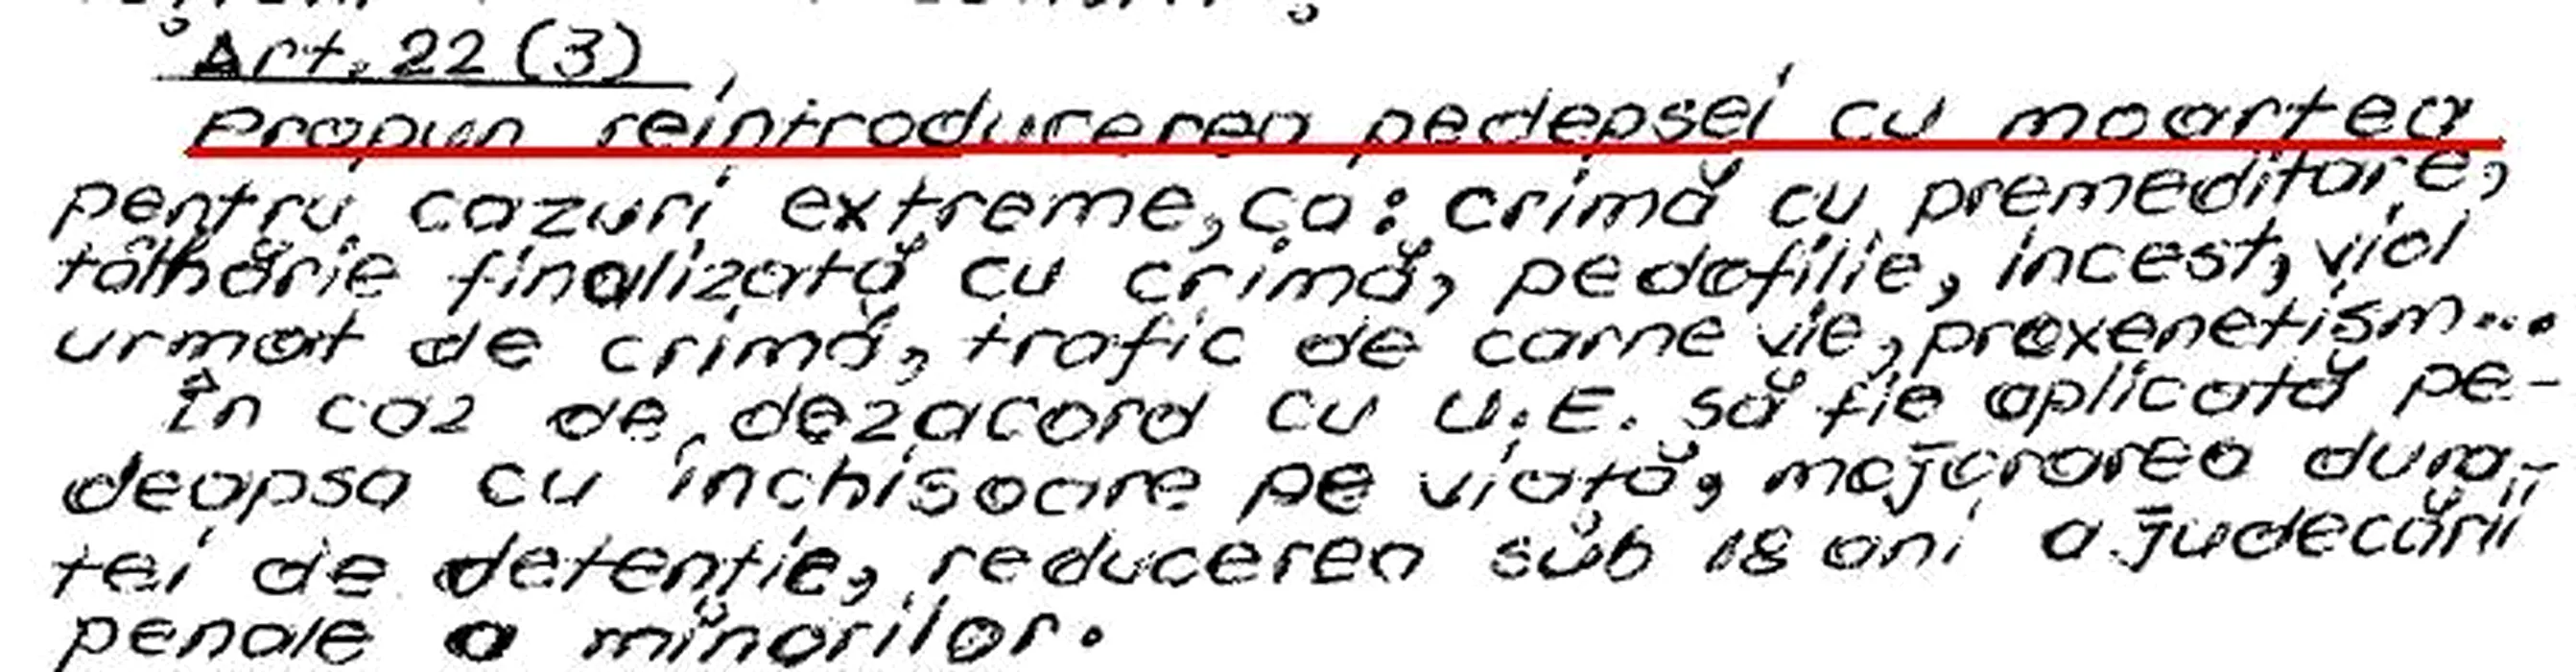 Art. 22 (3)
Propun reintroducerea pedepsei cu moartea
pentru cazuri extreme, ca: crimă cu premeditare,
tâlhărie finalizată cu crimă, pedofilie, incest, viol
urmat de crimă, trafic de carne vie, proxenetism...
În caz de dezacord cu U.E. să fie aplicată pe-
deapsa cu închisoare pe viață, majorarea dura-
tei de detenție, reducerea sub 18 ani a judecării
penale a minorilor.